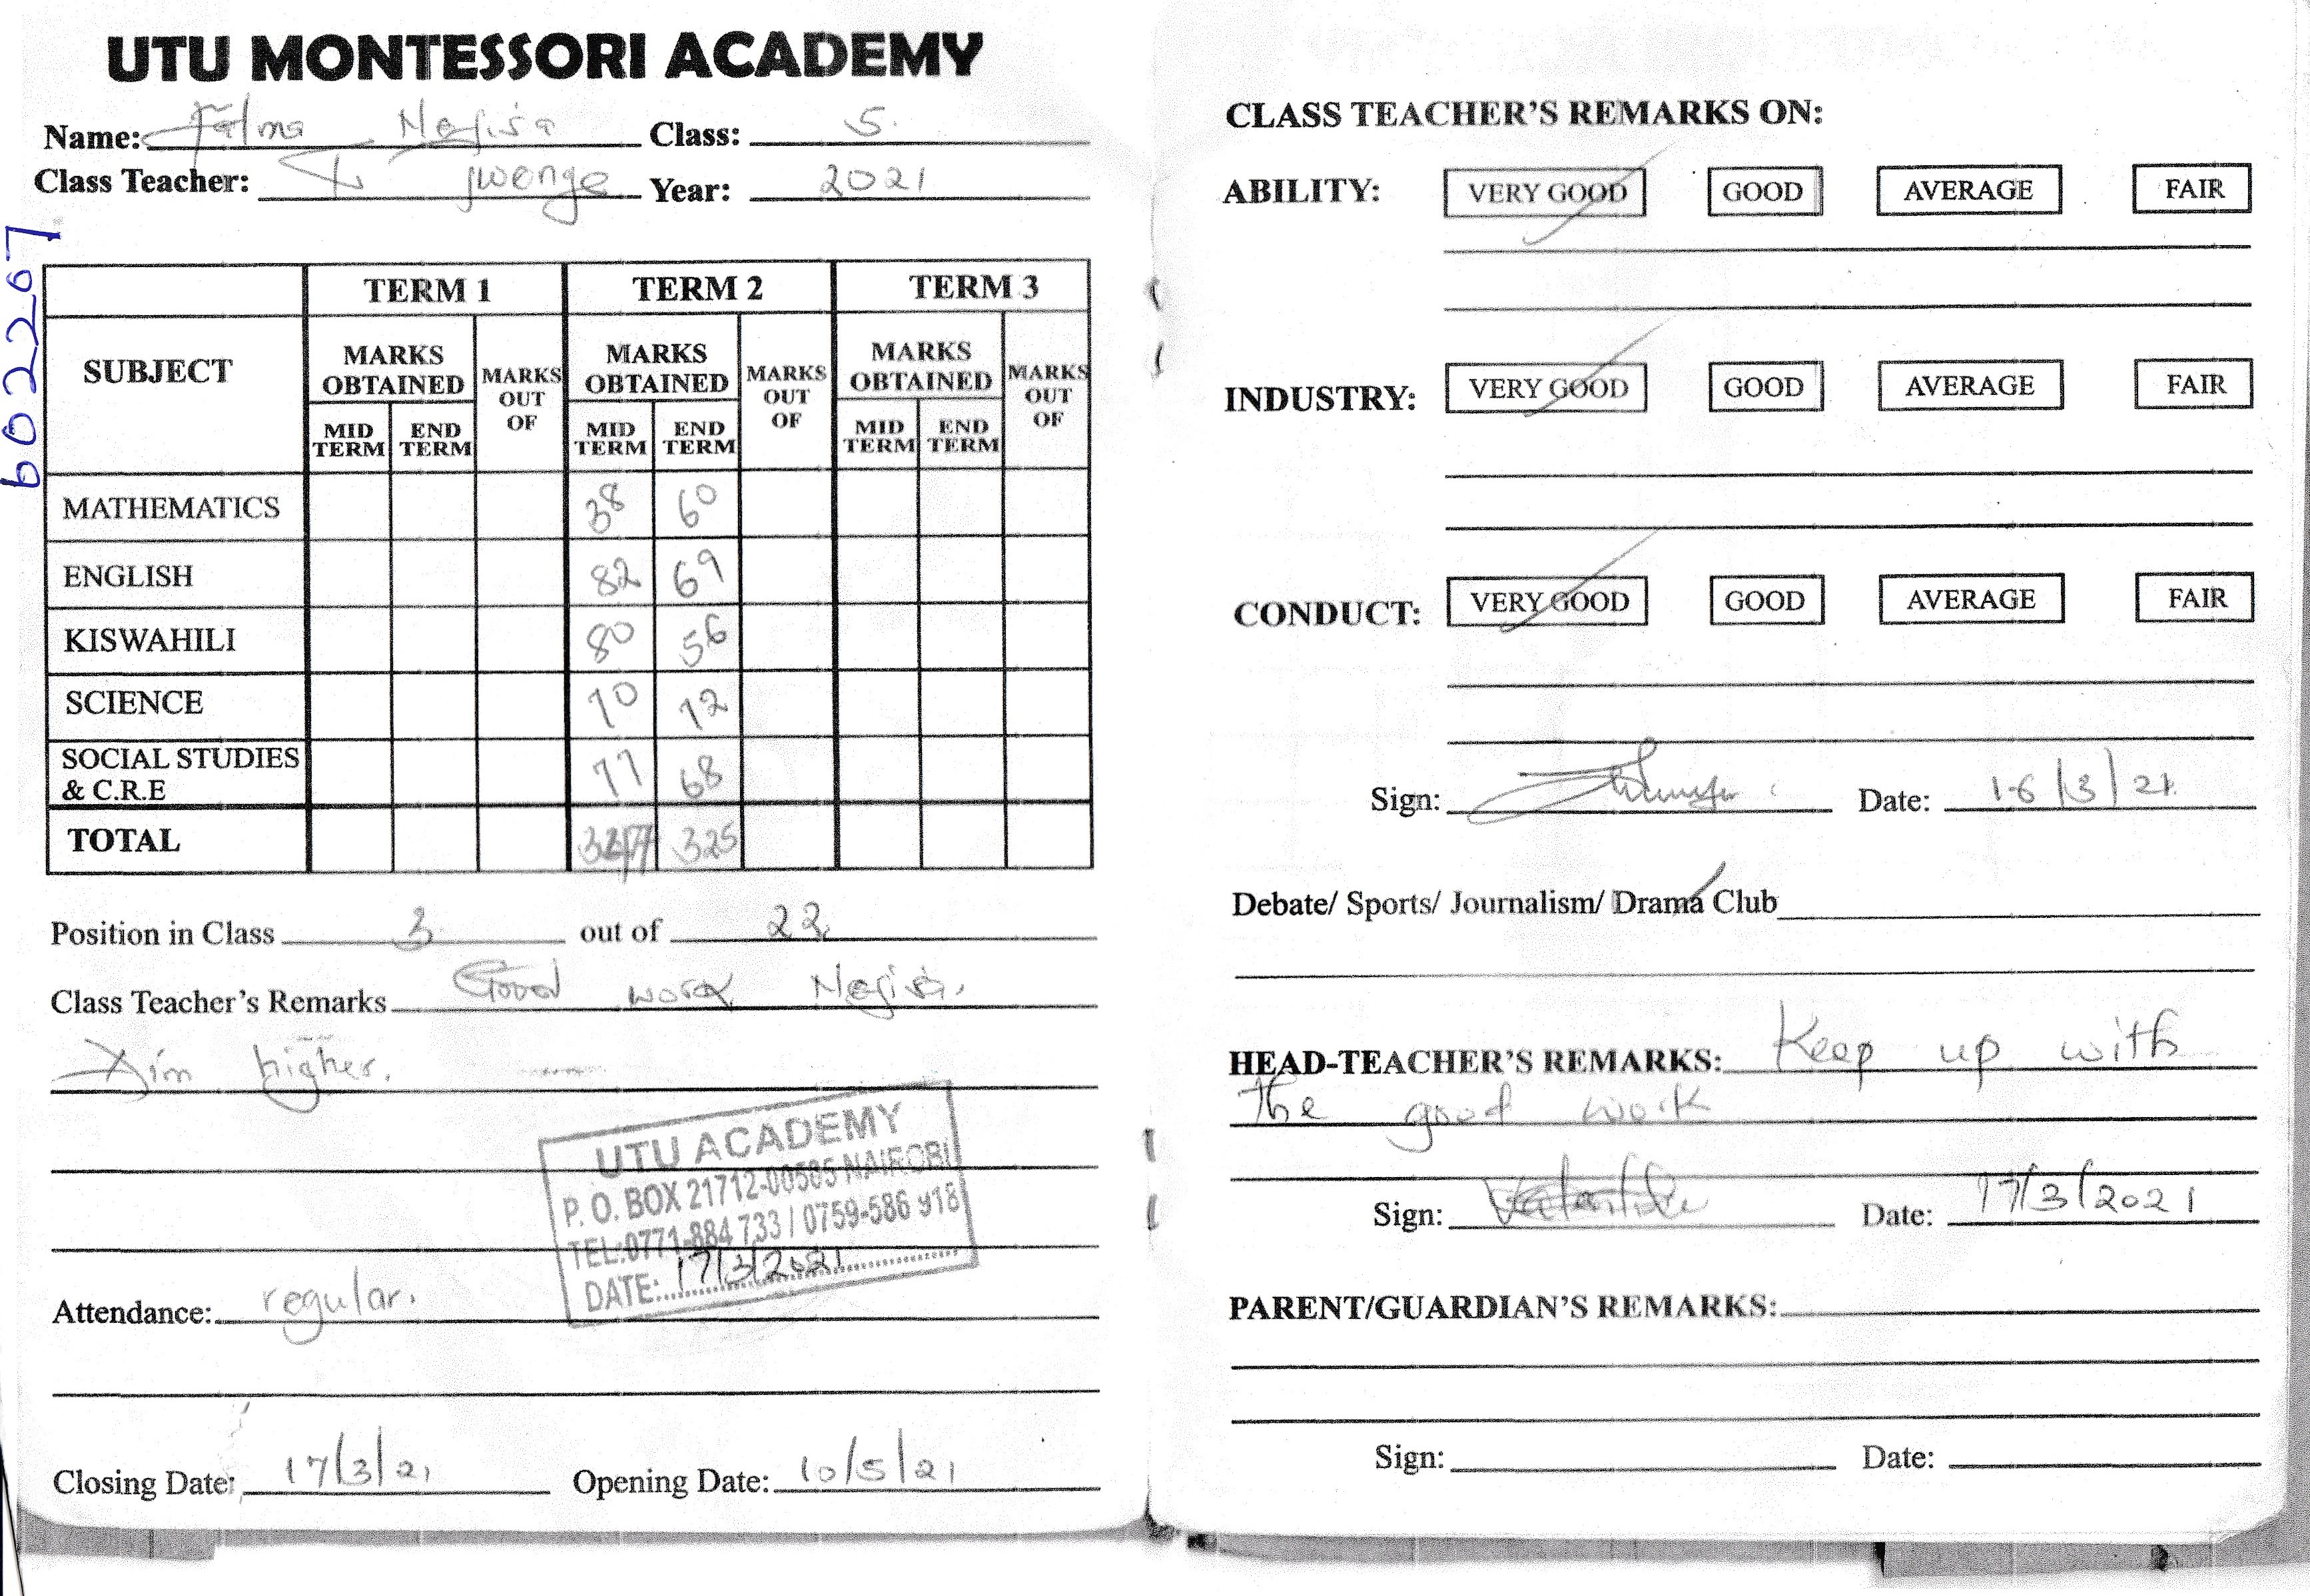 UTU MONTESSORI ACADEMY
Name: Fatma Nagisa Class: 5.
Class Teacher: Tr Jwenge Year: 2021
6022207
TERM 1 TERM 2 TERM 3
SUBJECT MARKS OBTAINED MARKS OUT OF MARKS OBTAINED MARKS OUT OF MARKS OBTAINED MARKS OUT OF
MID TERM END TERM MID TERM END TERM MID TERM END TERM
MATHEMATICS 38 60
ENGLISH 82 69
KISWAHILI 80 56
SCIENCE 70 72
SOCIAL STUDIES & C.R.E 77 68
TOTAL 325
Position in Class 3 out of 22
Class Teacher's Remarks Good work Nagisa.
Aim higher.
UTU ACADEMY
P. O. BOX 21712-00505 NAIROBI
TEL:0771-884 733 / 0759-586 918
DATE: 17/3/2021
Attendance: regular.
Closing Date: 17/3/21 Opening Date: 10/5/21
CLASS TEACHER'S REMARKS ON:
ABILITY: VERY GOOD GOOD AVERAGE FAIR
INDUSTRY: VERY GOOD GOOD AVERAGE FAIR
CONDUCT: VERY GOOD GOOD AVERAGE FAIR
Sign: Date: 16/3/21.
Debate/ Sports/ Journalism/ Drama Club
HEAD-TEACHER'S REMARKS: Keep up with
the good work
Sign: Date: 17/3/2021
PARENT/GUARDIAN'S REMARKS:
Sign: Date: